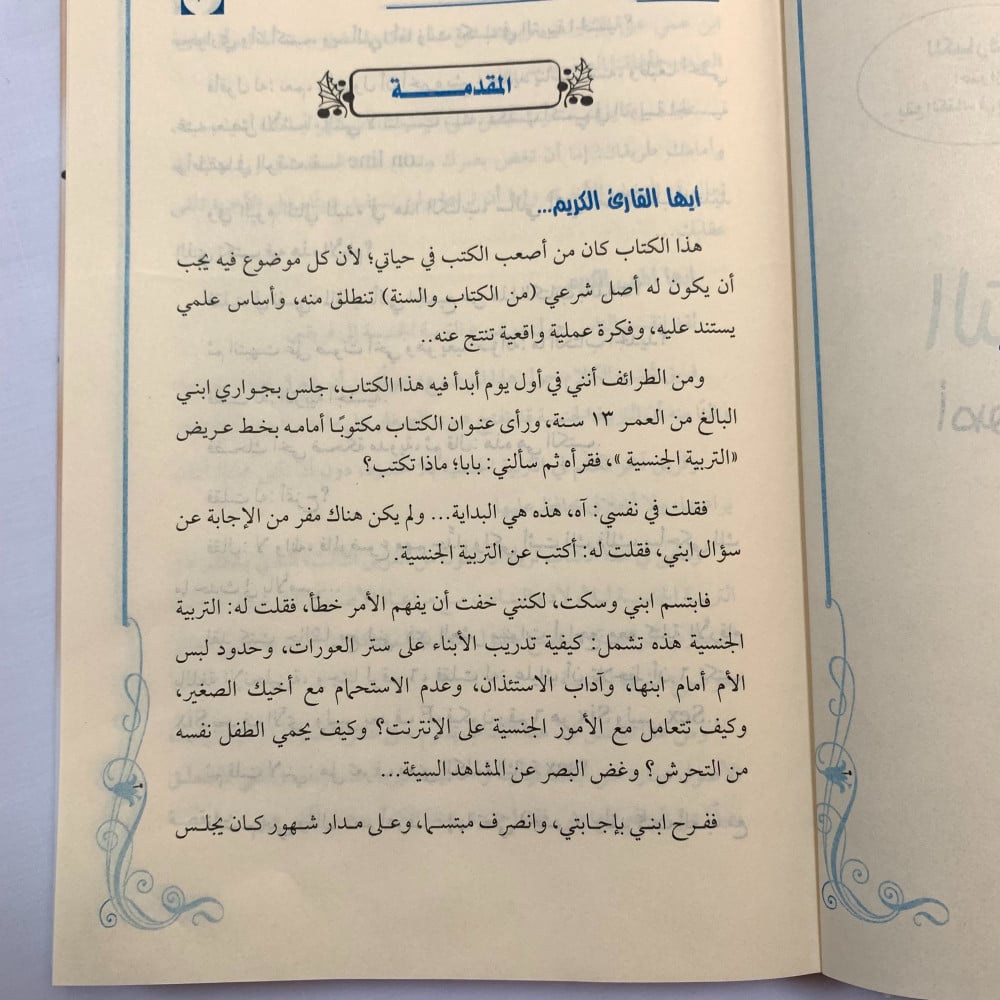 المقدمـــــــة
أيها القارئ الكريم...
هذا الكتاب كان من أصعب الكتب في حياتي؛ لأن كل موضوع فيه يجب
أن يكون له أصل شرعي (من الكتاب والسنة) تنطلق منه، وأساس علمي
يستند عليه، وفكرة عملية واقعية تنتج عنه..
ومن الطرائف أنني في أول يوم أبدأ فيه هذا الكتاب، جلس بجواري ابني
البالغ من العمر ١٣ سنة، ورأى عنوان الكتاب مكتوبًا أمامه بخط عريض
«التربية الجنسية»، فقرأه ثم سألني: بابا؛ ماذا تكتب؟
فقلت في نفسي: آه، هذه هي البداية... ولم يكن هناك مفر من الإجابة عن
سؤال ابني، فقلت له: أكتب عن التربية الجنسية.
فابتسم ابني وسكت، لكنني خفت أن يفهم الأمر خطأ، فقلت له: التربية
الجنسية هذه تشمل: كيفية تدريب الأبناء على ستر العورات، وحدود لبس
الأم أمام ابنها، وآداب الاستئذان، وعدم الاستحمام مع أخيك الصغير،
وكيف تتعامل مع الأمور الجنسية على الإنترنت؟ وكيف يحمي الطفل نفسه
من التحرش؟ وغض البصر عن المشاهد السيئة...
ففرح ابني بإجابتي، وانصرف مبتسما، وعلى مدار شهور كان يجلس